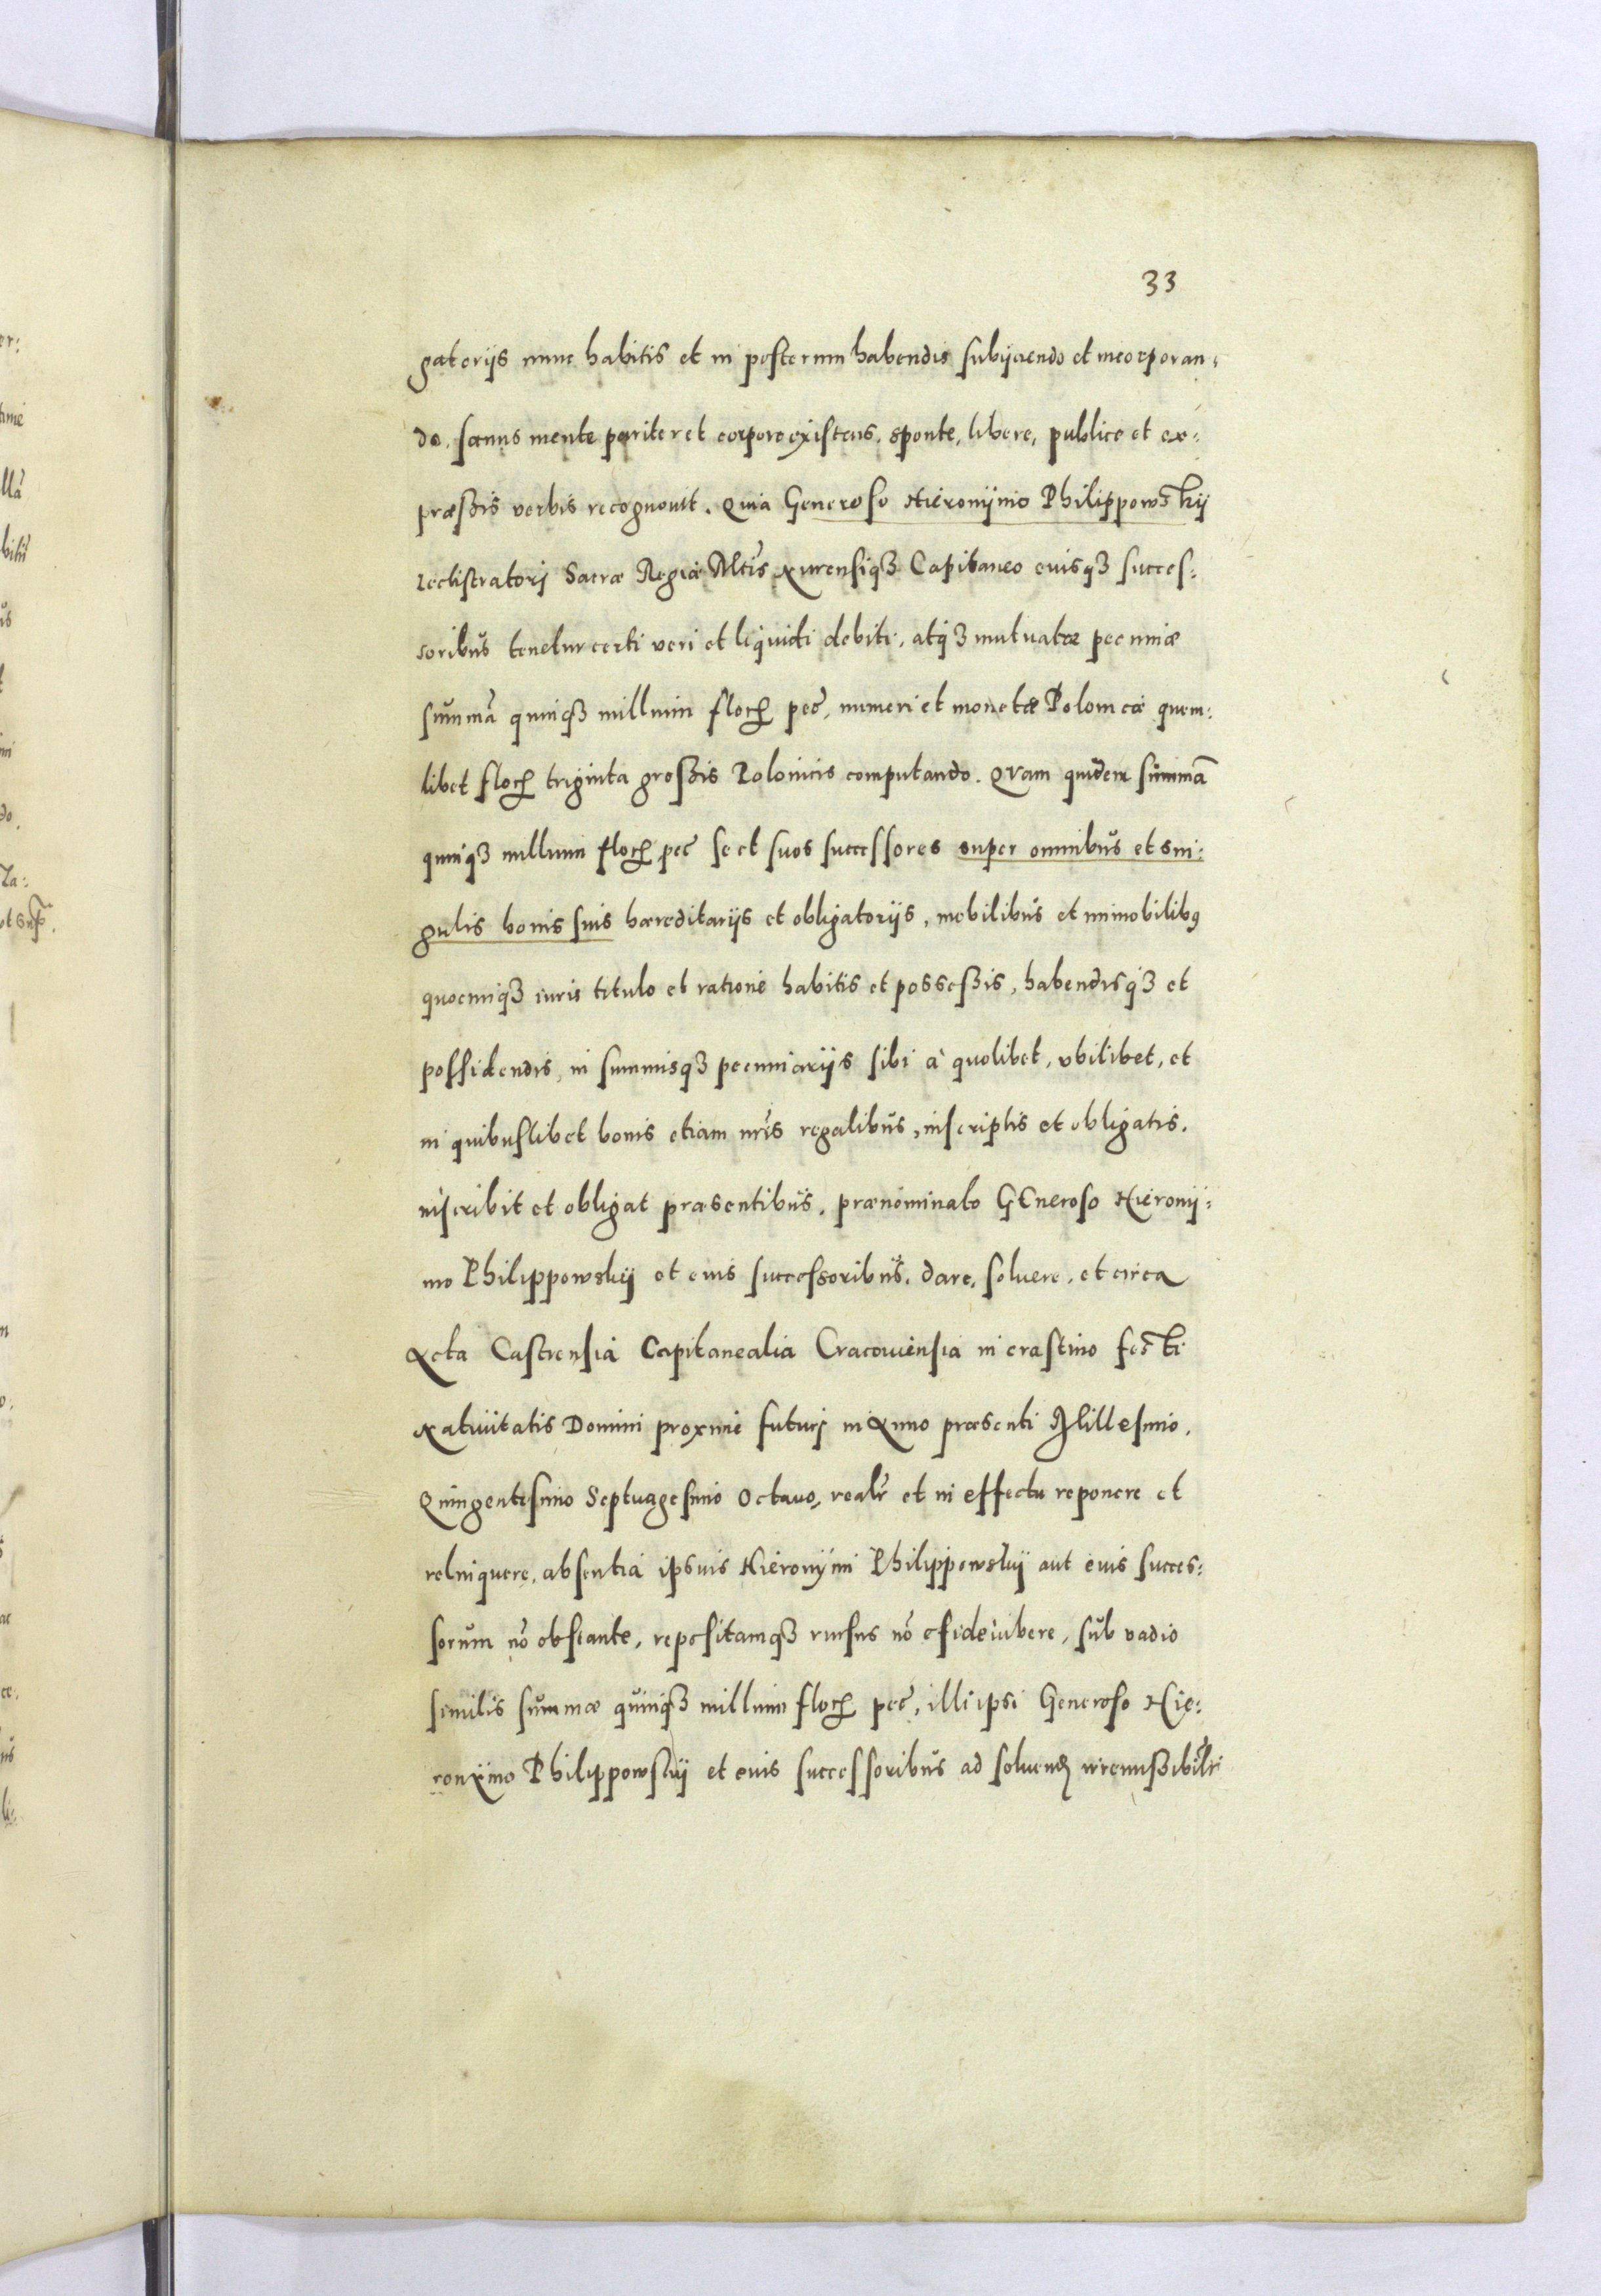 33
gatorijs nunc habitis et in posterum habendis subijciendo et incorporan:
do. sanus mente pariter et corpore existens, sponte, libere, publice et ex:
præssis verbis recognouit. Quia Generoso Hieronijmo Philippowskij
Reciistratorj Sacræ Regiæ Mtis Xurensiqȝ Capitaneo euisqȝ succes:
soribus tenetur certi veri et liquidi debiti, atqȝ mutuatæ pecuniæ
summā quinqȝ millium floꝝ pec̄, numeri et monetæ Polonicæ quem:
libet floꝝ triginta grossis Polonicis computando. Quam quidem summā
quinqȝ millium floꝝ pec̄ se et suos successores super omnibus et sin:
gulis bonis suis hæreditarijs et obligatorijs, mobilibus et immobilibꝰ
quocunqȝ iuris titulo et ratione habitis et possessis, habendisqȝ et
possidendis, in summisqȝ pecuniarijs sibi à quolibet, vbilibet, et
in quibuslibet bonis etiam nr̄is regalibus, inscriptis et obligatis.
inscribit et obligat præsentibus, prænominato GEneroso Hieronij:
mo Philippowskij et eius successoribus, dare, soluere, et circa
Acta Castrensia Capitanealia Cracouiensia in crastino festi
Natiuitatis Domini proxime futurj in Anno præsenti Millesimo,
Quingentesimo Septuagesimo Octauo, realr̄ et in effectu reponere et
relinquere, absentia ipsuis Hieronijmi Philippowskij aut eius succes:
sorum nō obstante, repositamqȝ rursus nō
sub vadio
similis summæ quinqȝ millium floꝝ pec̄, illi ipsi Generoso Hie:
ronÿmo Philippowskij et euis successoribus ad soluenđ irremissibilr̄